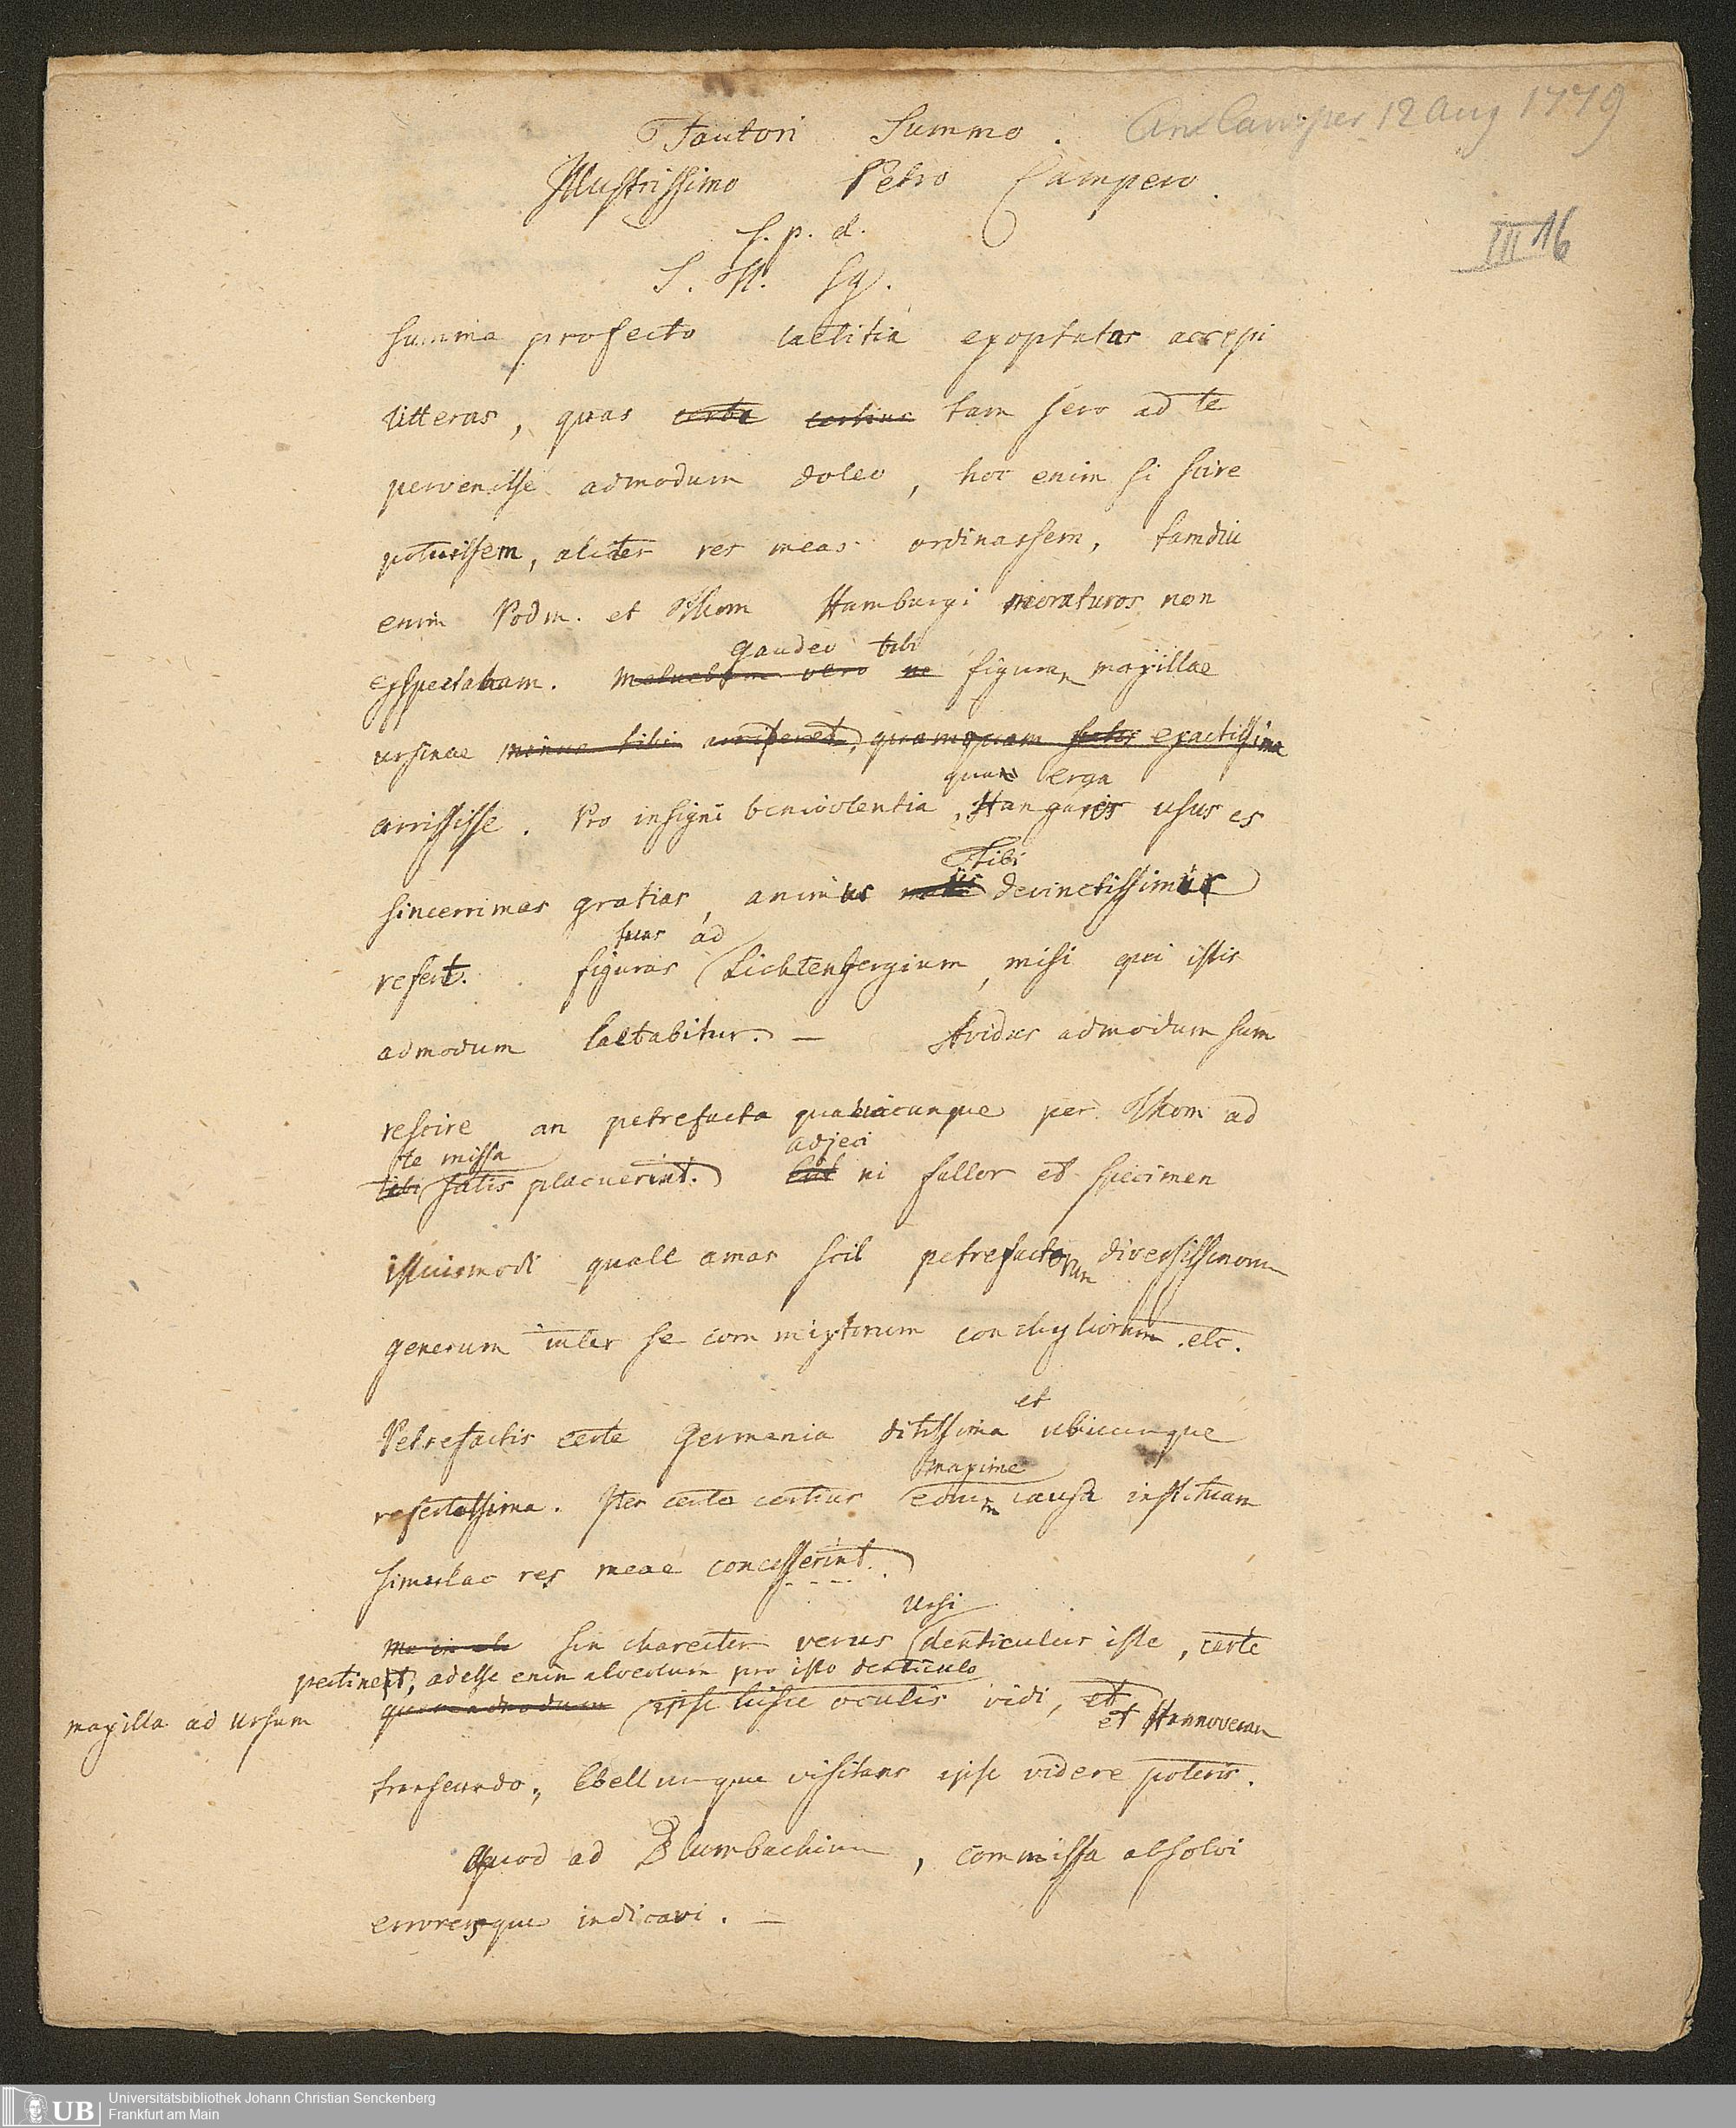 An Camper 12 Aug 1779
III 16
Fautori Summo.
Illustrissimo Petro Campero.
S. p. d.
S. Th. Sg.
Summa profecto laetitia exoptatas accepi
litteras, quas certe certius tam sero ad te
pervenisse admodum doleo, hoc enim si scire
potuissem, aliter res meas ordinassem, tamdiu
enim Podm. et Thom Hamburgi moraturos non
gaudeo tibi
exspectabam. Metuebam vero ne figuram maxillae
ursinae minus tibi arrideret, quamquam satis exactissima
quam erga
arrisisse. Pro insigni benivolentia, Hungaros usus es
Tibi
sincerrimas gratias, animus devinctissimus
suas ad
refert. figuras Lichtenbergium, misi qui istis
admodum laetabitur. — Avidus admodum sum
rescire an petrefacta qualiacunque per Thom ad
te missa adjeci
tibi satis placuerint. ni fallor et specimen
istiusmodi quale amas scil petrefactorum diversissimorum
generum inter se commixtorum conchyliorum etc.
et
Petrefactis certe Germania ditissima ubicunque
maxime
refertissima. Iter certe certius eorum causa instituam
simulac res meae concesserint.
Ursi
sin charecter verus denticulus iste, certe
pertinet, adesse enim alveolum pro isto denticulo
maxilla ad Ursum quemadmodum ipse hisce oculis vidi, et
et Hannoveram
transeundo, Ebellumque visitans ipse videre poteris.
Quod ad Blumbachium, commissa absolvi
erroresque indicavi. —
Universitätsbibliothek Johann Christian Senckenberg
Frankfurt am Main
UB